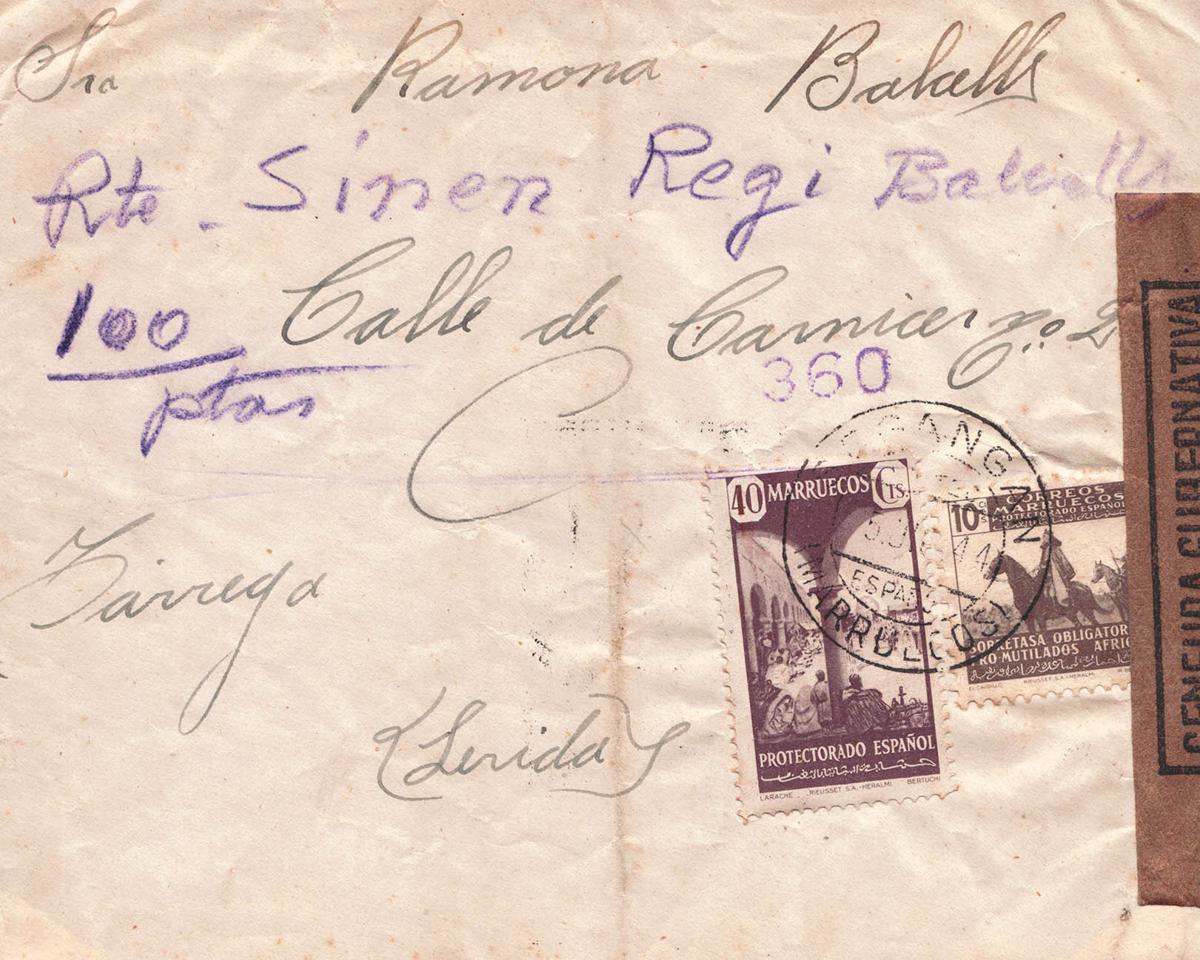 Sra Ramona Balcells
Rte. Sinen Regi Balcells
100
ptas
Calle de Carnicer nº 2
360
Tárrega
(Lerida)
40 MARRUECOS Cts.
PROTECTORADO ESPAÑOL
LARACHE RIEUSSET S.A.-HERALMI BERTUCHI
10 Cts CORREOS
MARRUECOS
PROTECTORADO ESPAÑOL
SOBRETASA OBLIGATOR
PRO-MUTILADOS AFRIC
EL CAUDILLO RIEUSSET S.A.-HERALMI
MARRUECOS
CENSURA GUBERNATIVA